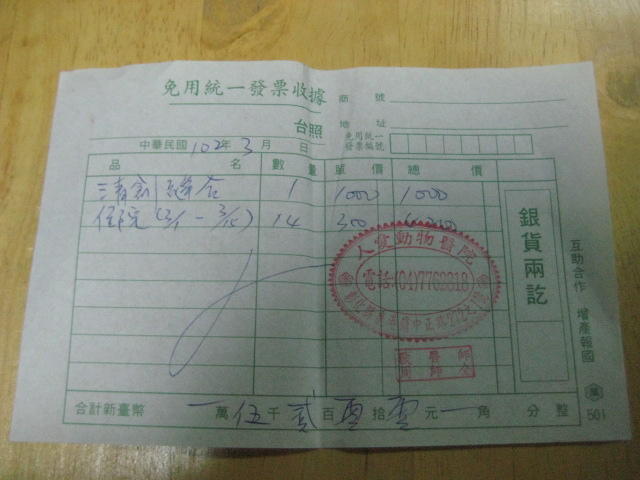 免用統一發票收據
商號
台照
地址
中華民國 102年 3月 日
免用統一
發票編號
品名 數量 單價 總價
縫合 1 1000 1000
住院 14 300
銀貨兩訖
互助合作 增產報國
人愛動物醫院
電話:(04)7762818
合計新臺幣 萬伍千貳百零拾零元 角 分 整
萬
501